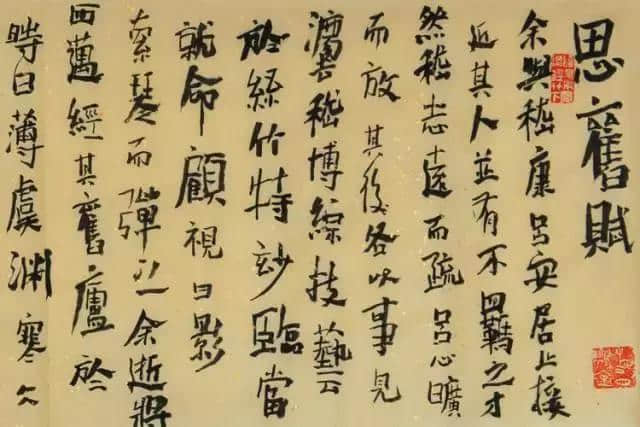 思舊賦
余與嵇康呂安居止接
近其人並有不羈之才
然嵇志遠而疏呂心曠
而放其後各以事見
灋嵇博綜技藝
於絲竹特玅臨當
就命顧視日影
索琴而彈之余逝將
西邁經其舊廬於
時日薄虞淵寒仌